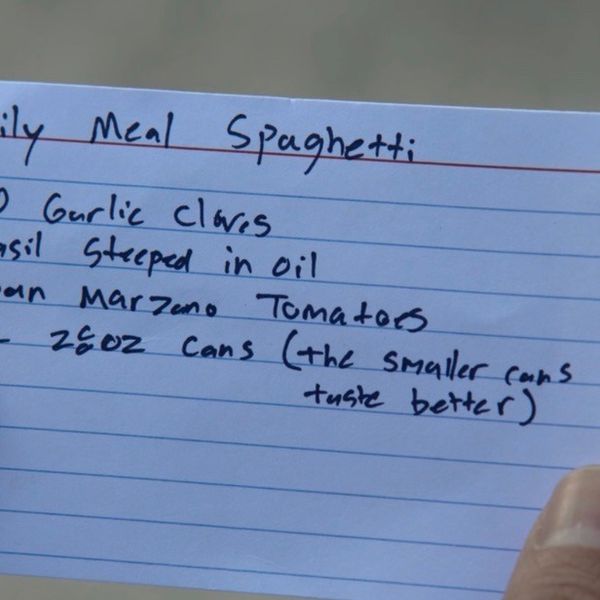 ily Meal Spaghetti
0 Garlic Cloves
asil Steeped in oil
an Marzano Tomatoes
- 28oz cans (the smaller cans
taste better)